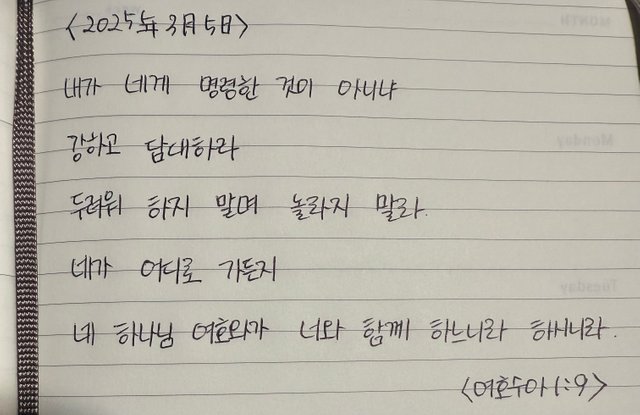 <2025年 3月 5日>
내가 네게 명령한 것이 아니냐
강하고 담대하라
두려워 하지 말며 놀라지 말라.
네가 어디로 가든지
네 하나님 여호와가 너와 함께 하느니라 하시니라.
<여호수아 1:9>
MONTH
Monday
Tuesday